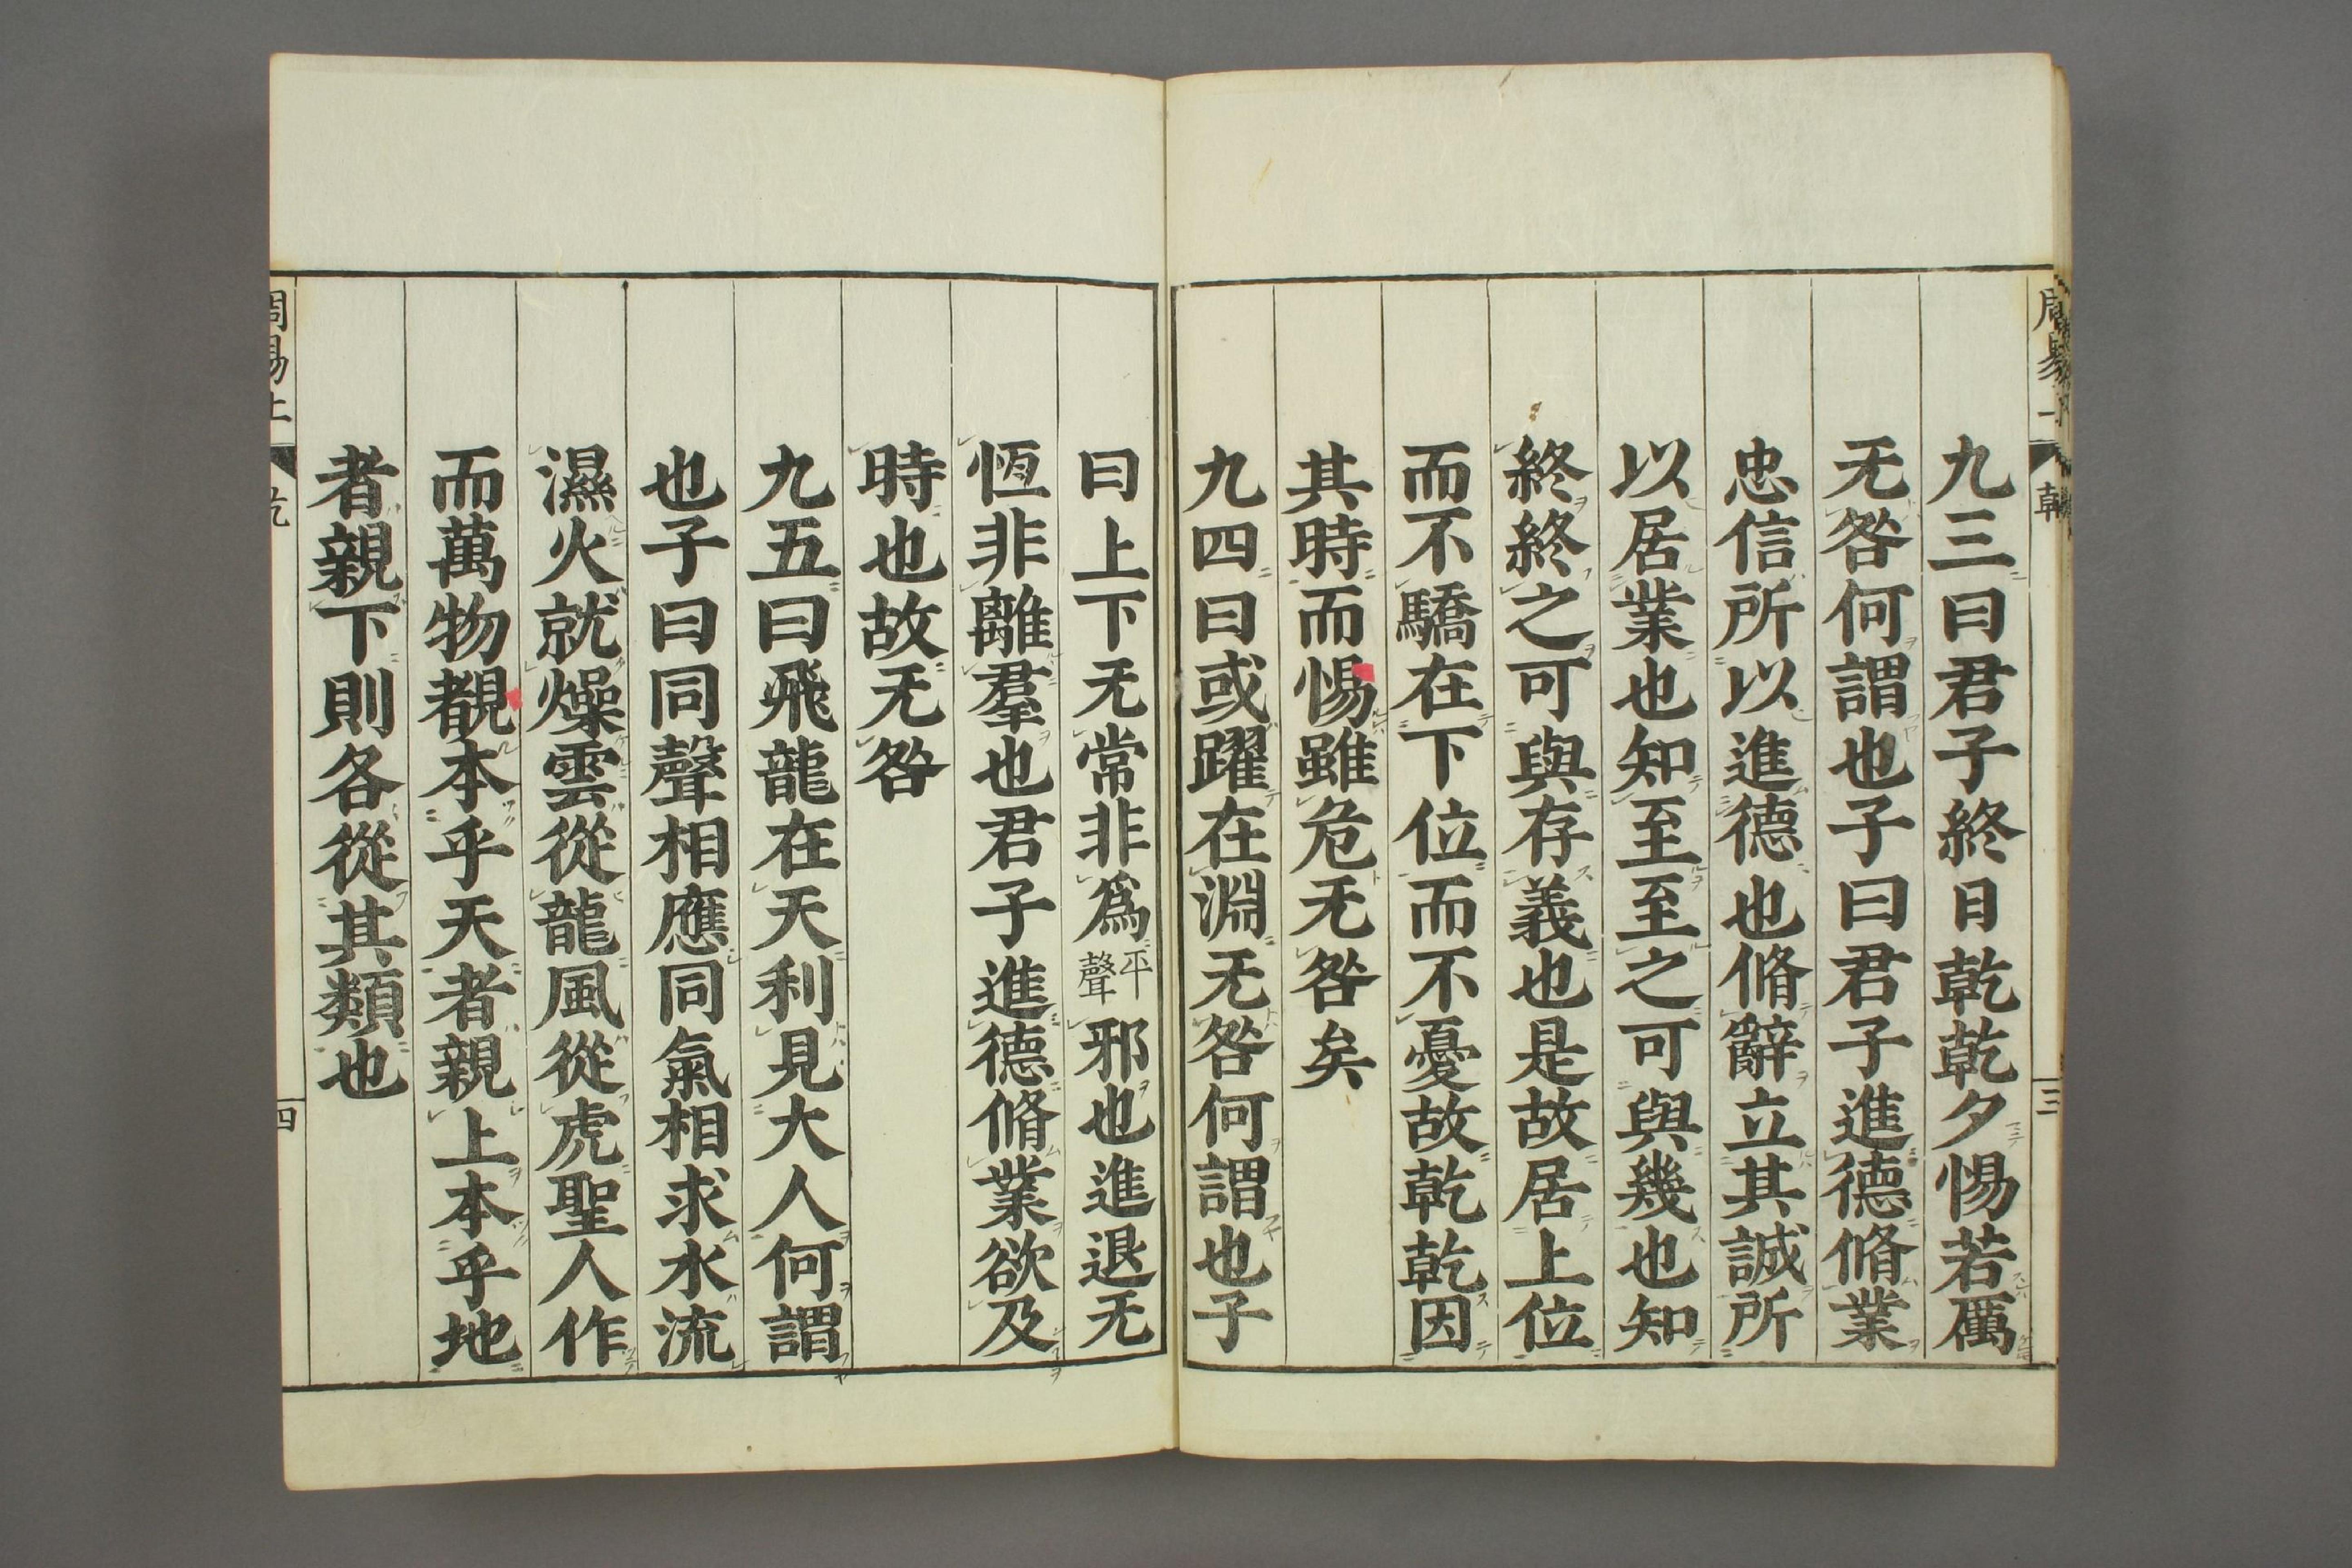 九三曰君子終日乾乾夕惕若厲
无咎何謂也子曰君子進德脩業
忠信所以進德也脩辭立其誠所
以居業也知至至之可與幾也知
終終之可與存義也是故居上位
而不驕在下位而不憂故乾乾因
其時而惕雖危无咎矣
九四曰或躍在淵无咎何謂也子
曰上下无常非爲平聲邪也進退无
恆非離羣也君子進德脩業欲及
時也故无咎
九五曰飛龍在天利見大人何謂
也子曰同聲相應同氣相求水流
濕火就燥雲從龍風從虎聖人作
而萬物覩本乎天者親上本乎地
者親下則各從其類也
周易上 乾 四